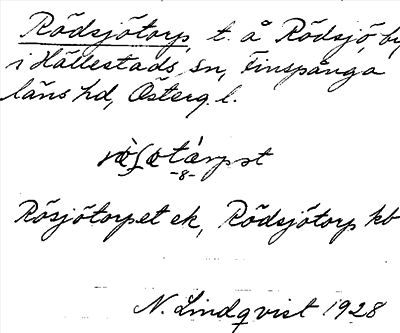 Rödsjötorp, t. å Rödsjö, by
i Hällestads sn, Finspånga
läns hd, Österg. l.
Rösjötorpet ek, Rödsjötorp kb
N. Lindqvist 1928